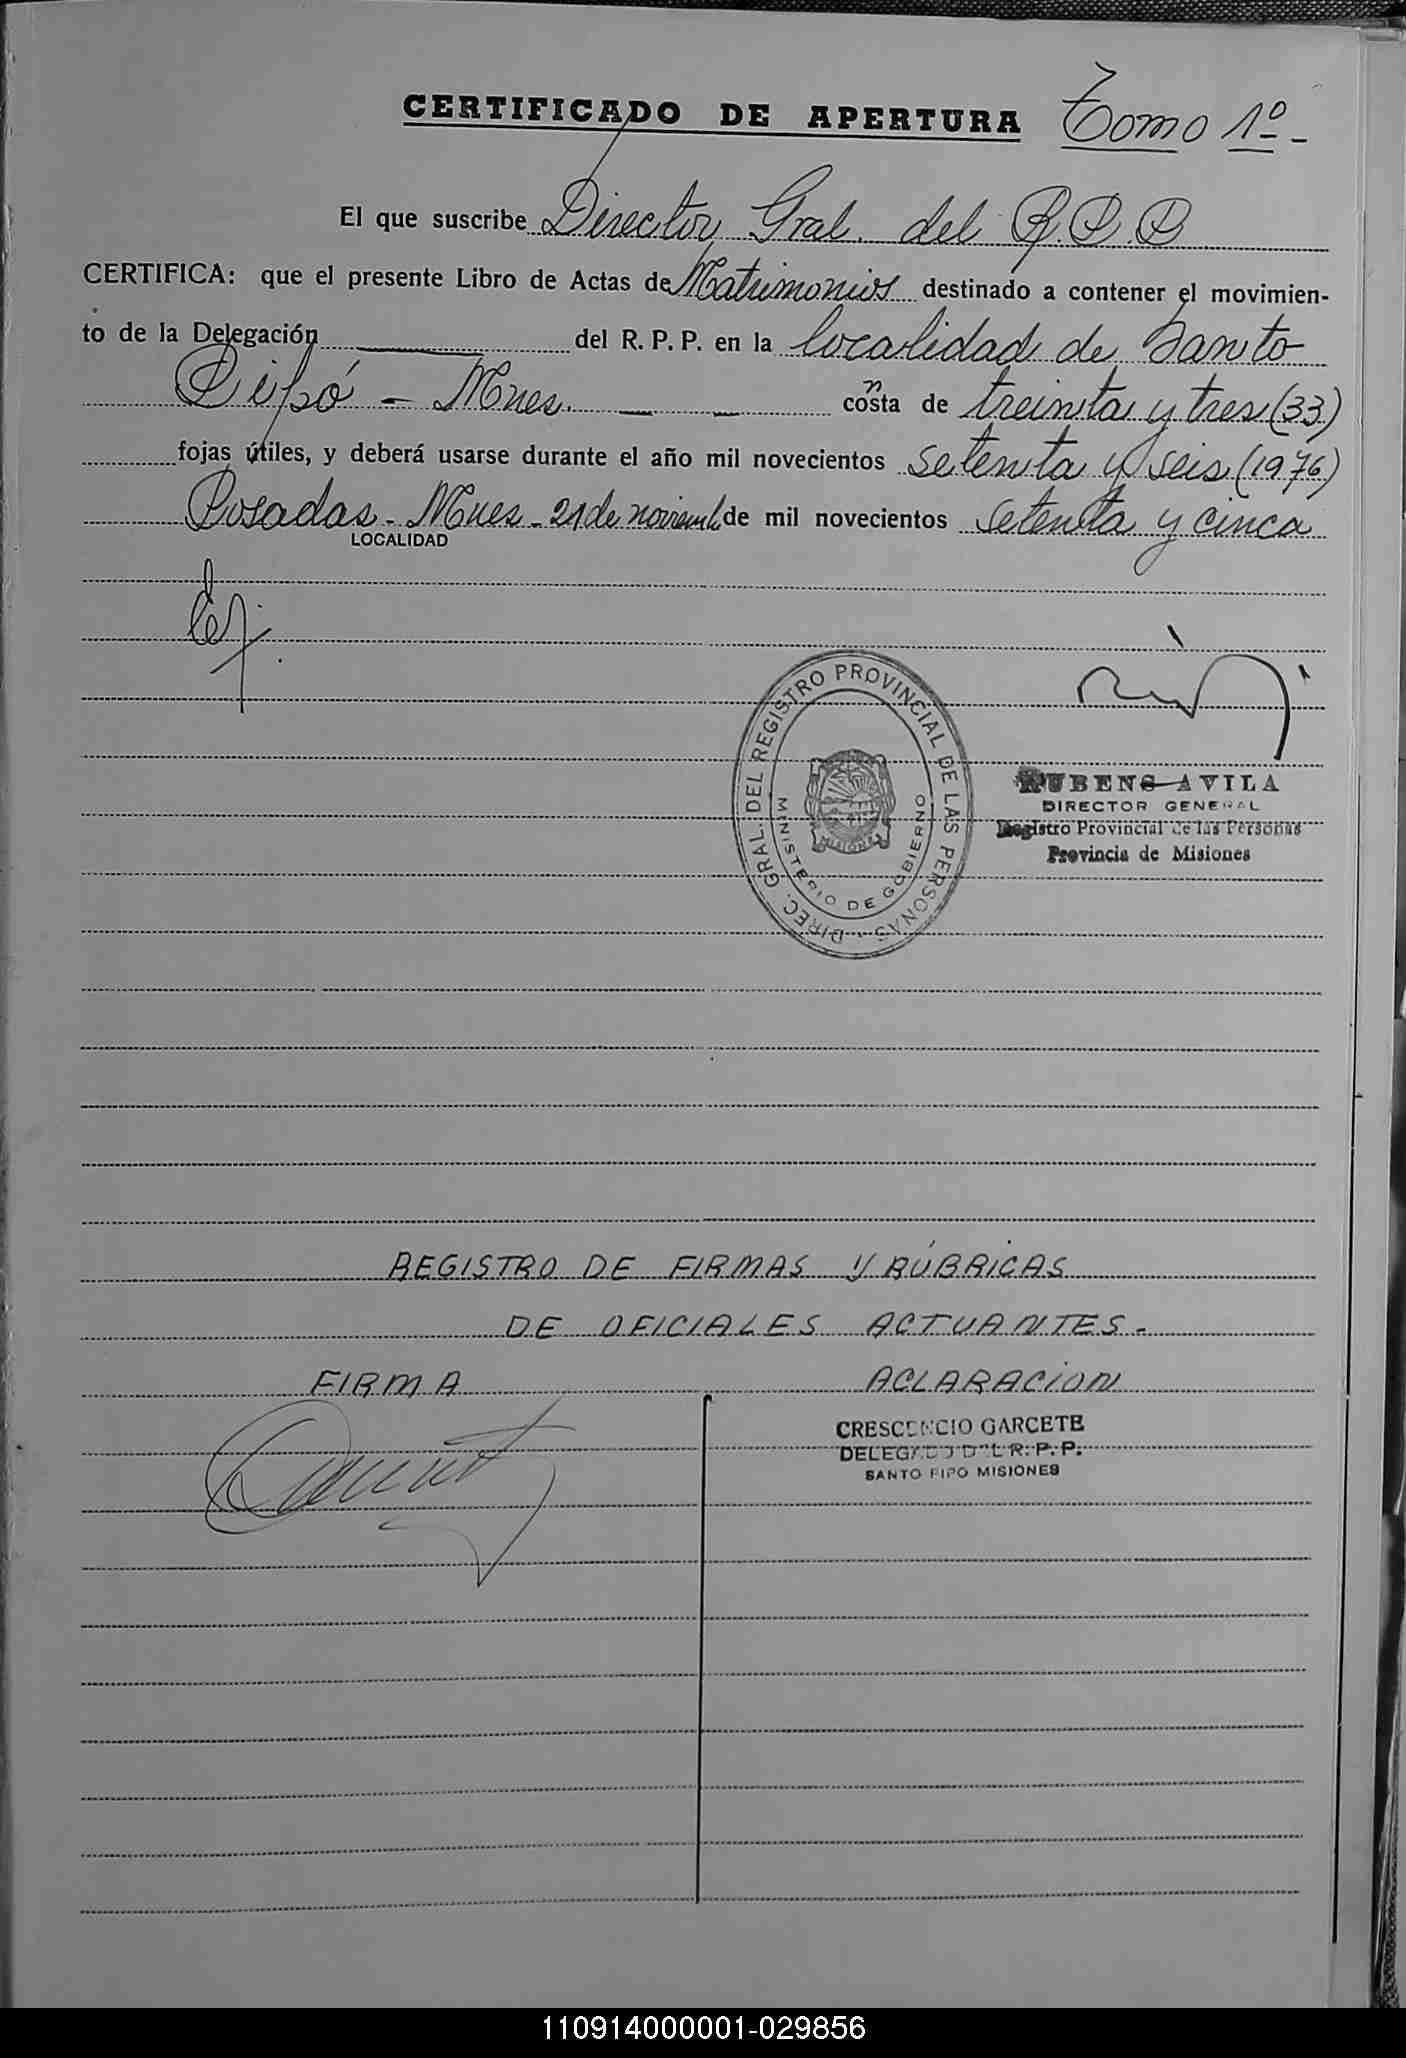 CERTIFICADO DE APERTURA Tomo 1º-
El que suscribe Director Gral. del R.P.P
CERTIFICA: que el presente Libro de Actas de Matrimonios destinado a contener el movimien-
to de la Delegación del R. P. P. en la localidad de Santo
Pipó - Mnes. costa de treinta y tres (33)
n
fojas útiles, y deberá usarse durante el año mil novecientos setenta y seis (1976)
Posadas - Mnes - 21 de noviembre de mil novecientos setenta y cinco
LOCALIDAD
DIREC. GRAL. DEL REGISTRO PROVINCIAL DE LAS PERSONAS -
MINISTERIO DE GOBIERNO
MISIONES
RUBENS AVILA
DIRECTOR GENERAL
Registro Provincial de las Personas
Provincia de Misiones
REGISTRO DE FIRMAS Y RÚBRICAS
DE OFICIALES ACTUANTES.-
FIRMA ACLARACION
CRESCENCIO GARCETE
DELEGADO DEL R. P. P.
SANTO PIPO MISIONES
110914000001-029856